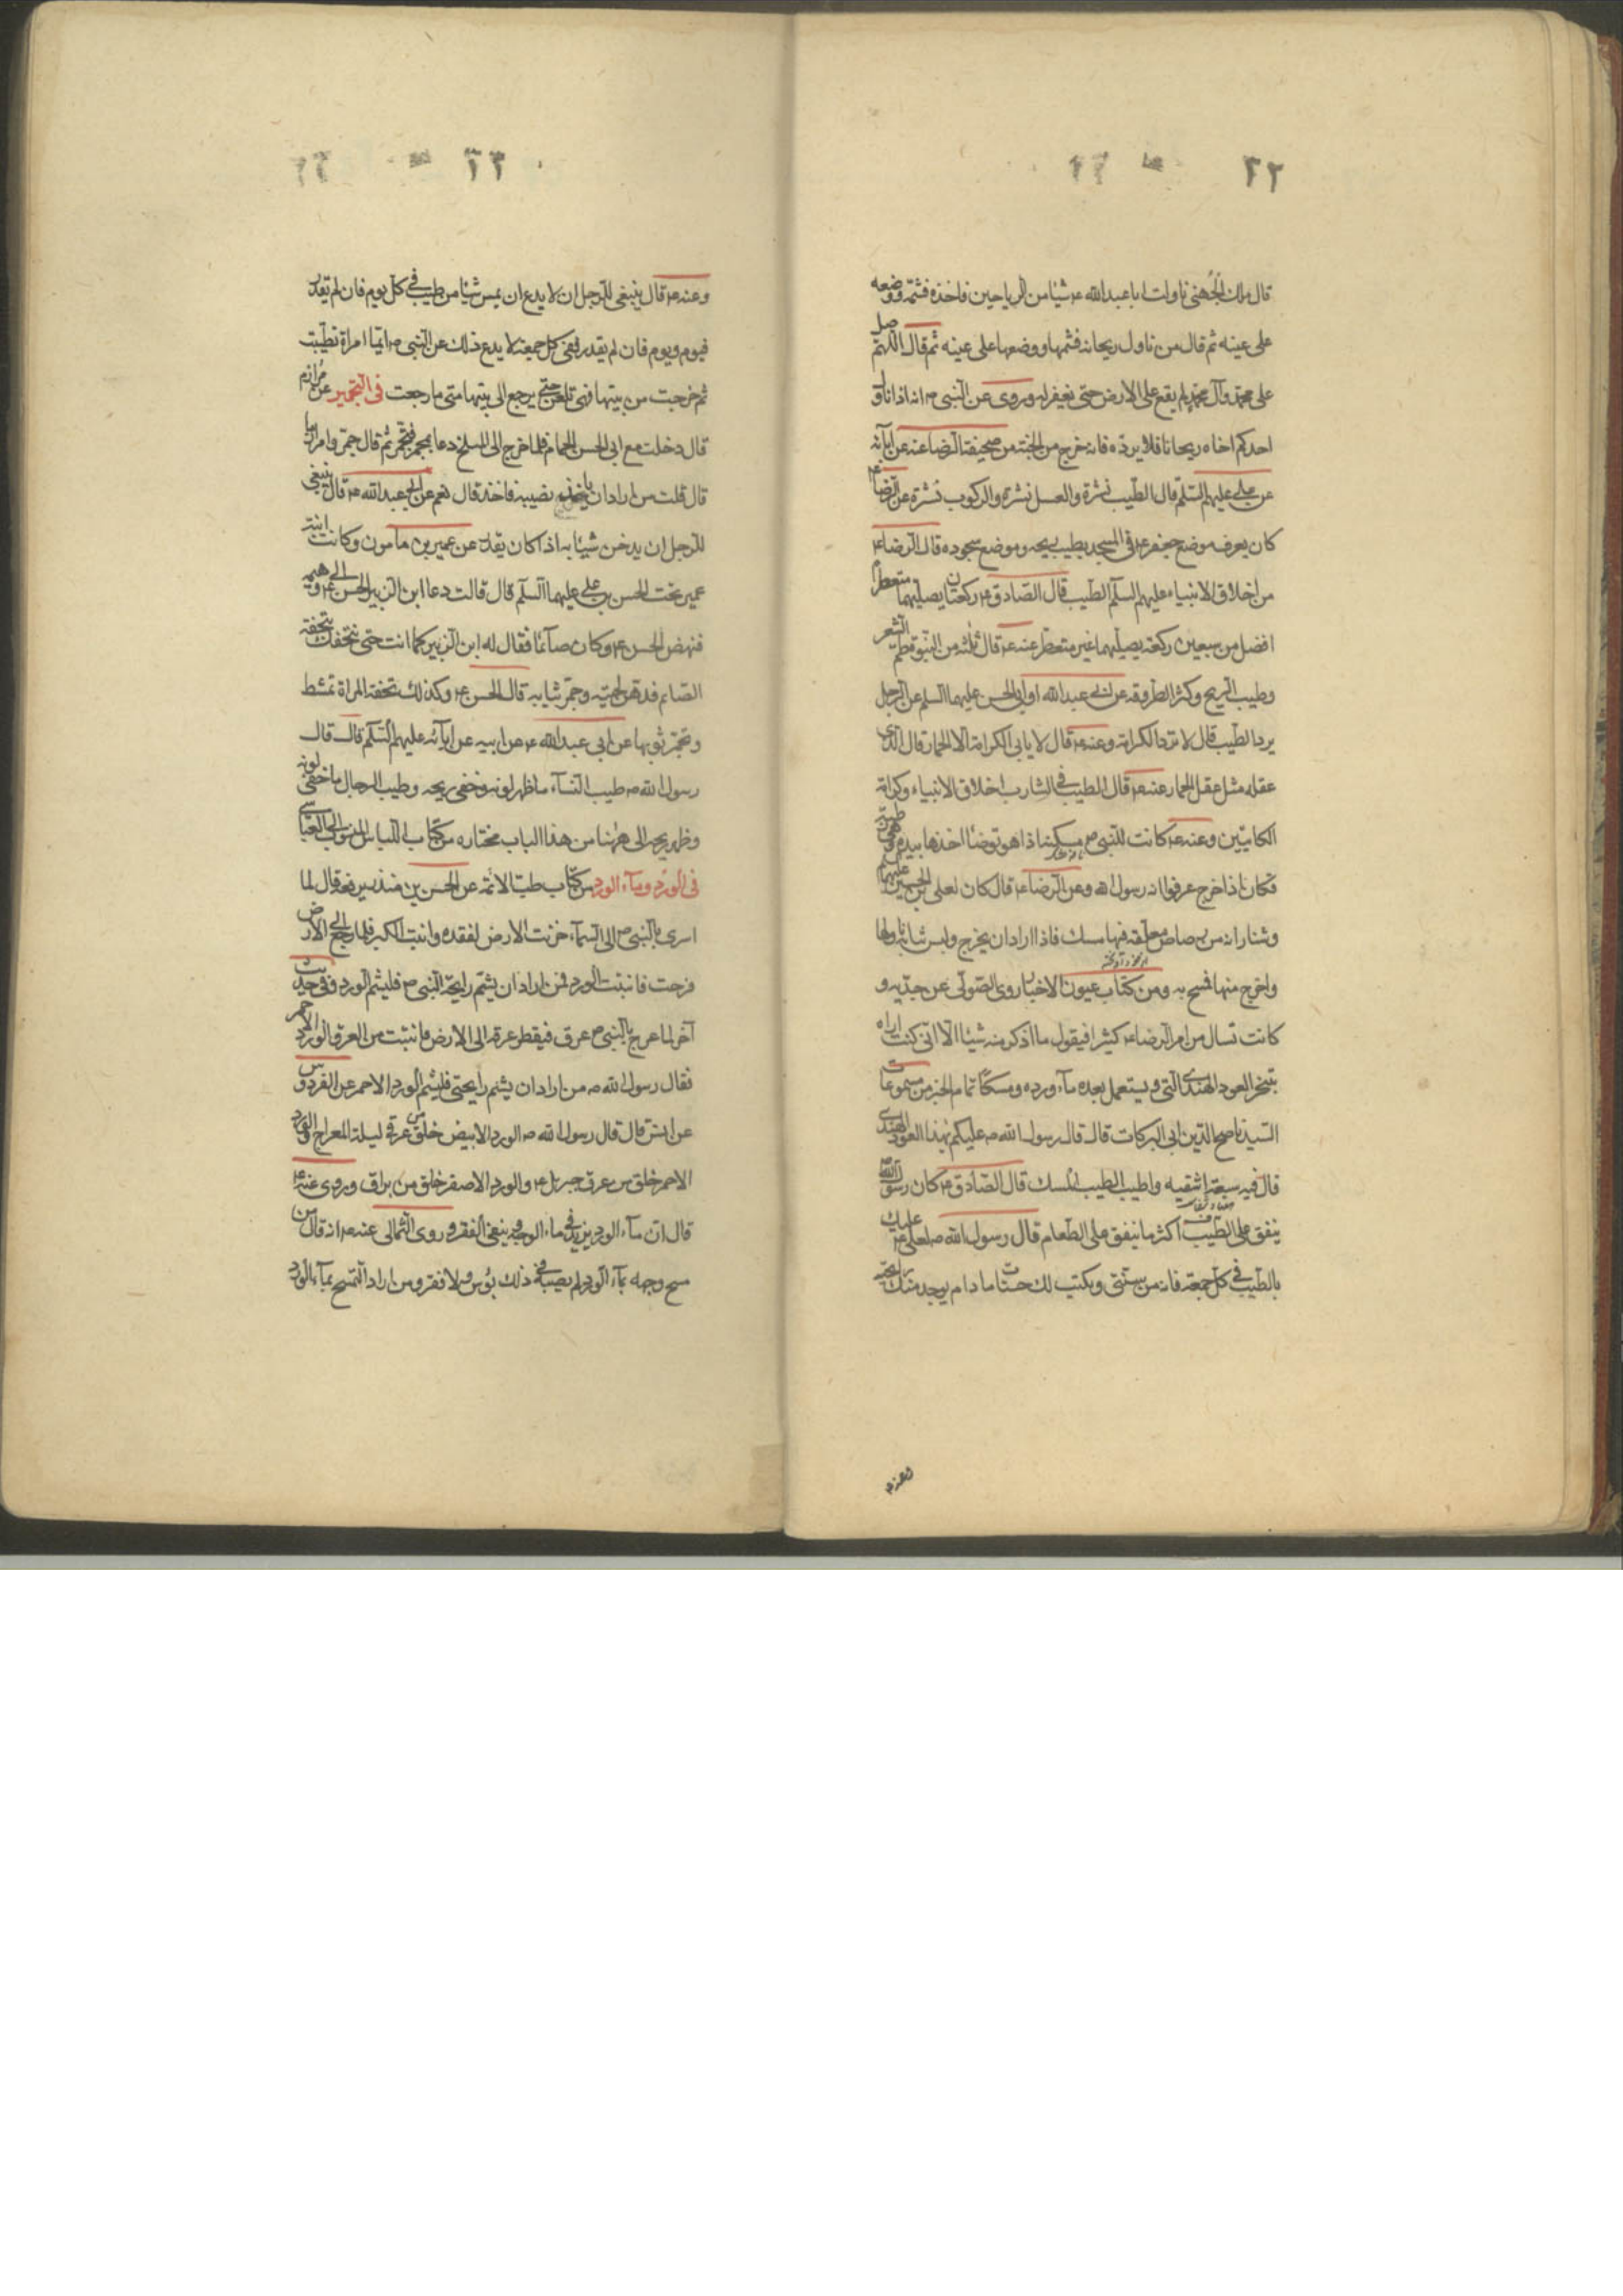 ٢٢
قال ملك الجُهنى ناولت ابا عبد الله ع شيئا من الرياحين فاخذه فشمه ووضعه
على عينه ثم قال من ناول ريحانة فشمها ووضعها على عينه ثم قال اللهم صل
على محمد وآل محمد لم يقع على الارض حتى يغفر له وروى عن النبى ص انه اذا ناول
احدكم اخاه ريحانا فلا يرده فانه خرج من الجنة من صحيفة الرضا عنه عن ابآئه
عن على عليهم السلم قال الطيب نشرة والعسل نشرة والركوب نشرة عن الرضا ع
كان يعرف موضع جعفر ع فى المسجد بطيب ريحه وموضع سجوده قال الرضا ع
من اخلاق الانبياء عليهم السلم الطيب قال الصادق ع ركعتان يصليهما متعطرا
افضل من سبعين ركعة يصليهما غير متعطر عنه ع قال ثلثة من النبوة طم الشعر
وطيب الريح وكثرة الطروقة عن ابى عبد الله او ابى الحسن عليهما السلم عن الرجل
يرد الطيب قال لا ترد الكرامة وعنه ع قال لا يابى الكرامة الا الحمار قال الذى
عقله مثل عقل الحمار عنه ع قال الطيب فى الشارب اخلاق الانبياء وكرامة
الكاتبين وعنه ع كانت للنبى ص ممسكة اذا هو توضئا اخذها بيده وهى رطبة
فكان اذا خرج عرفوا انه رسول الله وعن الرضا ع قال كان لعلى بن الحسين عليهما
وشناراته من رصاص معلقة فيها مسك فاذا اراد ان يخرج ولبس ثيابه تناولها
واخرج منها فمسح به ومن كتاب عيون الاخبار روى الصولى عن جدته و
كانت تسال من امر الرضا ع كثيرا فيقول ما اذكر منه شيئا الا انى كنت اراه
يتبخر العود الهندى النى ويستعمل بعده مآء ورده ومسكا تمام الخبر من مسموعات
السيد ناصح الدين ابى البركات قال قال رسول الله ص عليكم بهذا العود الهندى
قال فيه سبعة اشفيه واطيب الطيب المسك قال الصادق ع كان رسول الله ص
ينفق على الطيب اكثر ما ينفق على الطعام قال رسول الله ص لعلى ع عليك
بالطيب فى كل جمعة فانه من سنتى ويكتب لك حسنات ما دام يوجد منك رايحته
وعنه ع
٢٣
وعنه ع قال ينبغى للرجل ان لا يدع ان يمس شيئا من طيب فى كل يوم فان لم يقدر
فيوم ويوم فان لم يقدر ففى كل جمعة لا يدع ذلك عن النبى ص ايما امراة تطيبت
ثم خرجت من بيتها فهى تلعن حتى يرجع الى بيتها متى ما رجعت فى التجمير عن مرازم
قال دخلت مع ابى الحسن الحمام فلما خرج الى المسلخ دعا بمجمر فتجمر ثم قال جمروا مرازما
قال قلت من اراد ان ياخذ نصيبه فاخذ قال نعم عن ابى عبد الله ع قال ينبغى
للرجل ان يدخن ثيابه اذا كان يقدر عن عمير بن مامون وكانت ابنة
عمير تحت الحسن بن على عليهما السلم قال قالت دعا ابن الزبير الحسن ع الى وليمة
فنهض الحسن ع وكان صآئما فقال له ابن الزبير كما انت حتى نتحفك بتحفة
الصائم فدهن لحيته وجمر ثيابه قال الحسن ع وكذلك تحفة المراة تمشط
وتجمر ثوبها عن ابى عبد الله ع عن ابيه عن ابآئه عليهم السلم قال قال
رسول الله ص طيب النسآء ما ظهر لونه وخفى ريحه وطيب الرجال ما خفى لونه
وظهر ريحه الى ههنا من هذا الباب مختاره من كتاب اللباس المنسوب الى العياشى
فى الورد ومآء الورد من كتاب طب الائمة عن الحسن بن منذر يرفعه قال لما
اسرى بالنبى ص الى السمآء حزنت الارض لفقده وانبتت الكبر فلما رجع الى الارض
فرحت فانبتت الورد فمن اراد ان يشم رايحة النبى ص فليشم الورد وفى حديث
آخر لما عرج بالنبى ص عرق فيقطر عرقه الى الارض فانبتت من العرق الورد الاحمر
فقال رسول الله ص من اراد ان يشم رايحتى فليشم الورد الاحمر عن الفردوس
عن انس قال قال رسول الله ص الورد الابيض خلق من عرقى ليلة المعراج والورد
الاحمر خلق من عرق جبريل ع والورد الاصفر خلق من براق وروى عنه ع
قال ان مآء الورد يزيد فى ماء الوجه وينفى الفقر وروى الثمالى عنه ع انه قال من
مسح وجهه بمآء الورد لم يصبه فى ذلك بؤس ولا فقر ومن اراد التمسح بمآء الورد